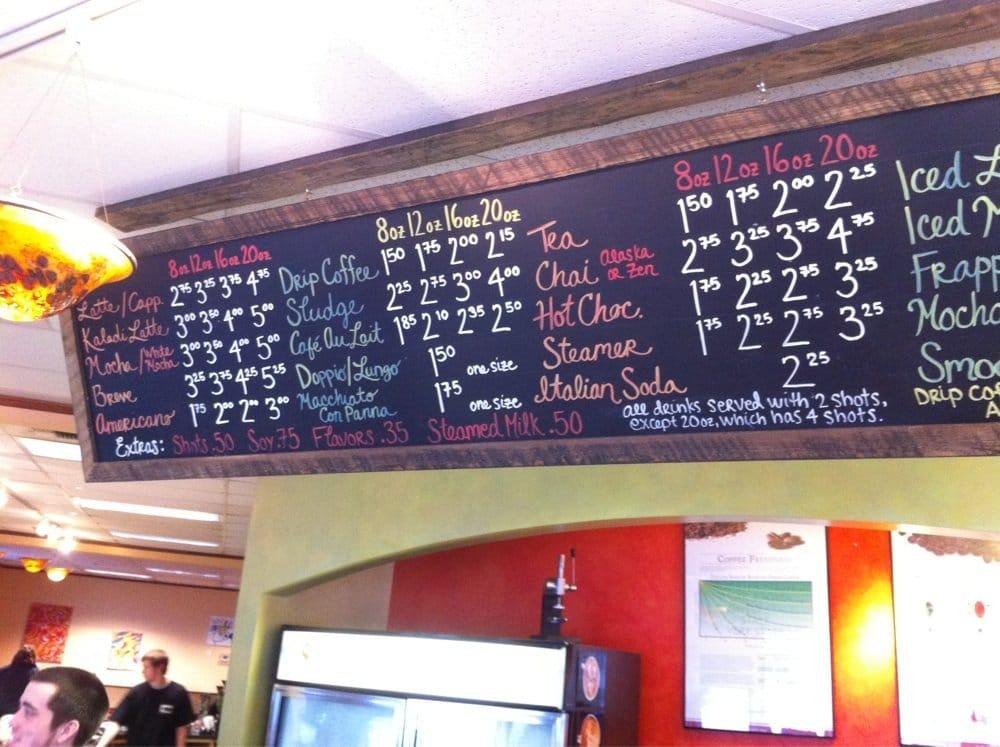 8oz 12oz 16oz 20oz
Latte/Capp. 2 75 3 25 3 75 4 75
Kaladi Latte 3 00 3 50 4 00 5 00
Mocha/White Mocha 3 00 3 50 4 00 5 00
Breve 3 25 3 75 4 25 5 25
Americano 1 75 2 00 2 00 3 00
8oz 12oz 16oz 20oz
Drip Coffee 1 50 1 75 2 00 2 15
Sludge 2 25 2 75 3 00 4 00
Café Au Lait 1 85 2 10 2 35 2 50
Doppio/Lungo 1 50 one size
Macchiato
Con Panna 1 75 one size
8oz 12oz 16oz 20oz
Tea 1 50 1 75 2 00 2 25
Chai Alaska or Zen 2 75 3 25 3 75 4 75
Hot Choc. 1 75 2 25 2 75 3 25
Steamer 1 75 2 25 2 75 3 25
Italian Soda 2 25
all drinks served with 2 shots,
except 20oz, which has 4 shots.
Extras: Shots .50 Soy .75 Flavors .35 Steamed Milk .50
Iced L
Iced M
Frapp
Mocha
Smoo
Drip Co
A